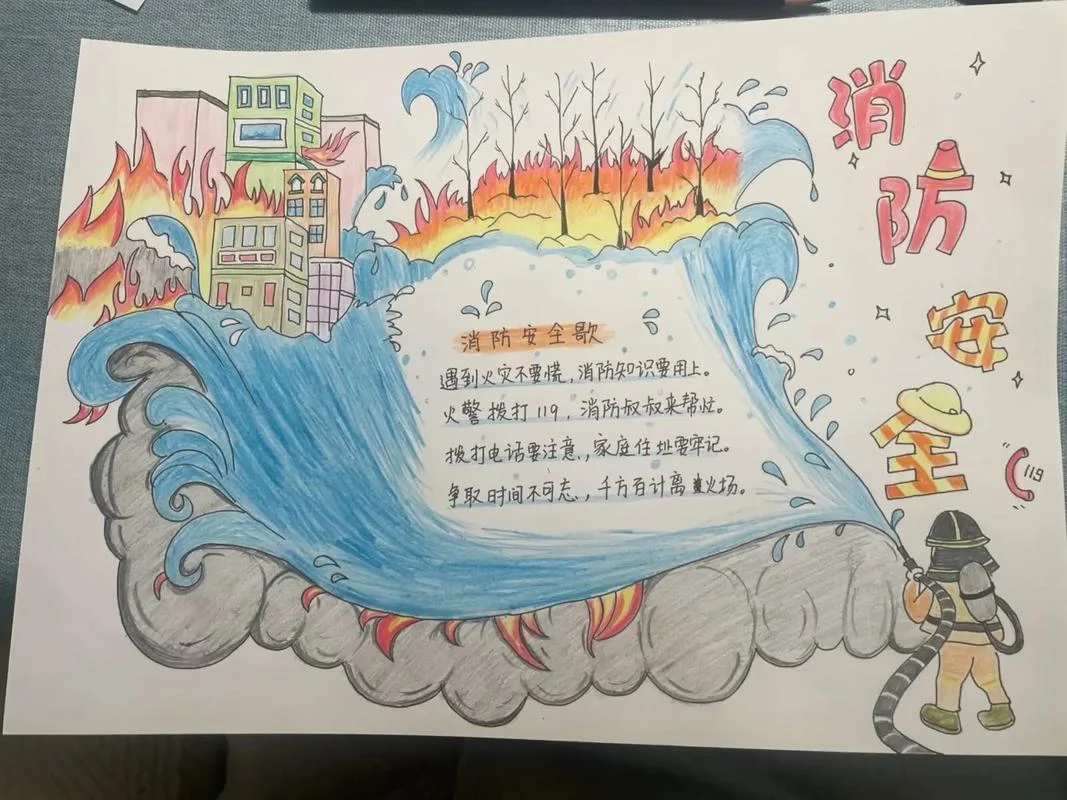 消防安全
消防安全歌
遇到火灾不要慌，消防知识要用上。
火警拨打119，消防叔叔来帮忙。
拨打电话要注意，家庭住址要牢记。
争取时间不可忘，千方百计离火场。
119